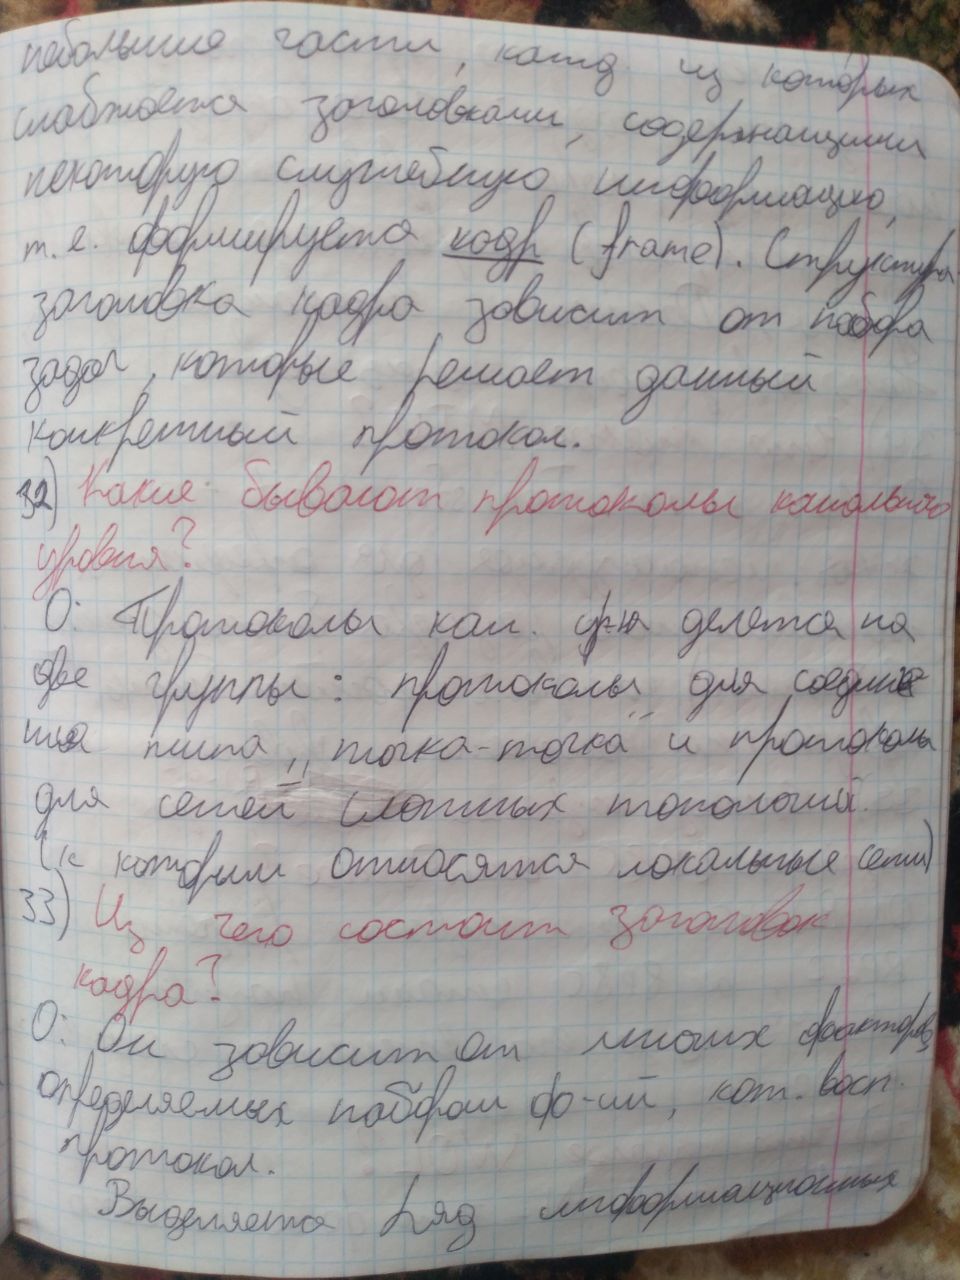 небольшие части, кажд из которых
снабжается заголовками, содержащими
некоторую служебную информацию,
т.е. формируется кадр (frame). Структура
заголовка кадра зависит от набора
задач, которые решает данный
конкретный протокол.
32) Какие бывают протоколы канального
уровня?
О: Протоколы кан. ур-ня делятся на
две группы: протоколы для соедине
ния типа ,,точка-точка" и протоколы
для сетей сложных топологий.
(к которым относятся локальные сети)
33) Из чего состоит заголовок
кадра?
О: Он зависит от многих факторов,
определяемых набором ф-ий, кот. вып.
протокол.
Выделяется ряд информационных